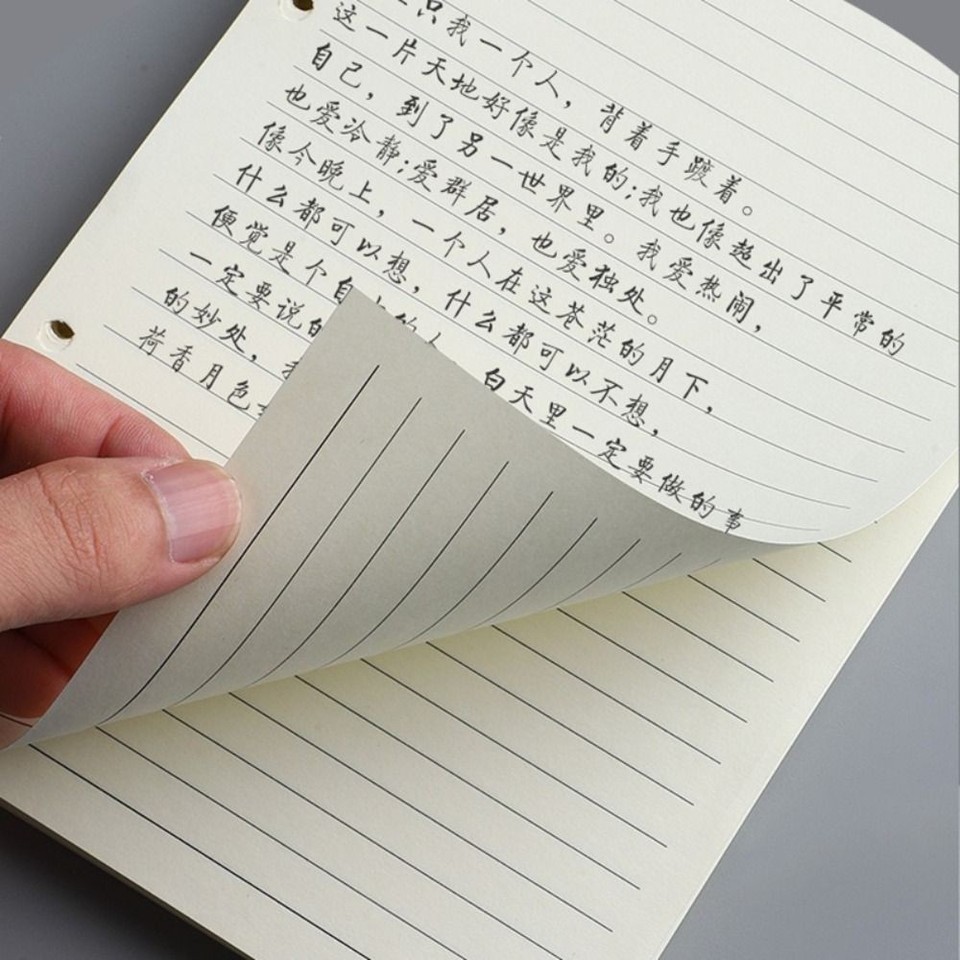 只我一个人，背着手踱着。
这一片天地好像是我的;我也像超出了平常的
自己，到了另一世界里。我爱热闹，
也爱冷静;爱群居，也爱独处。
像今晚上，一个人在这苍茫的月下，
什么都可以想，什么都可以不想，
便觉是个自 的人。白天里一定要做的事
一定要说的
的妙处，
荷香月色